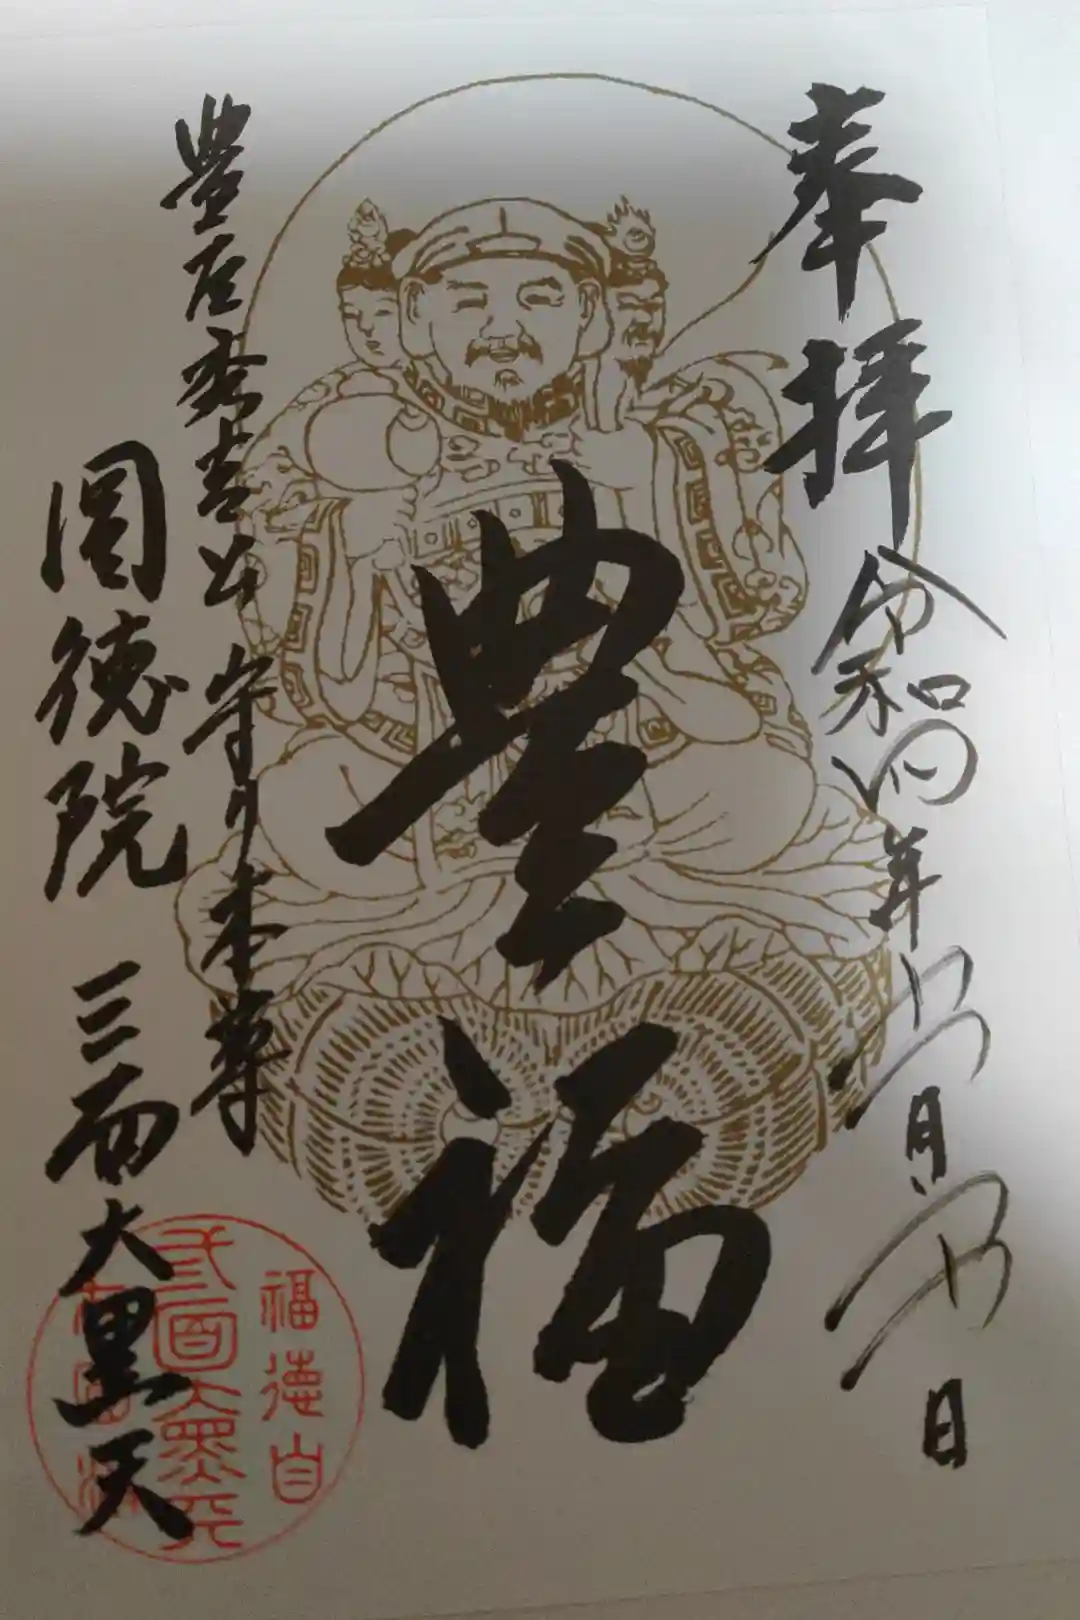 奉拝
令和四年 月 日
豊福
豊臣秀吉公守り本尊
圓徳院 三面大黒天
福徳自
三面大黒天